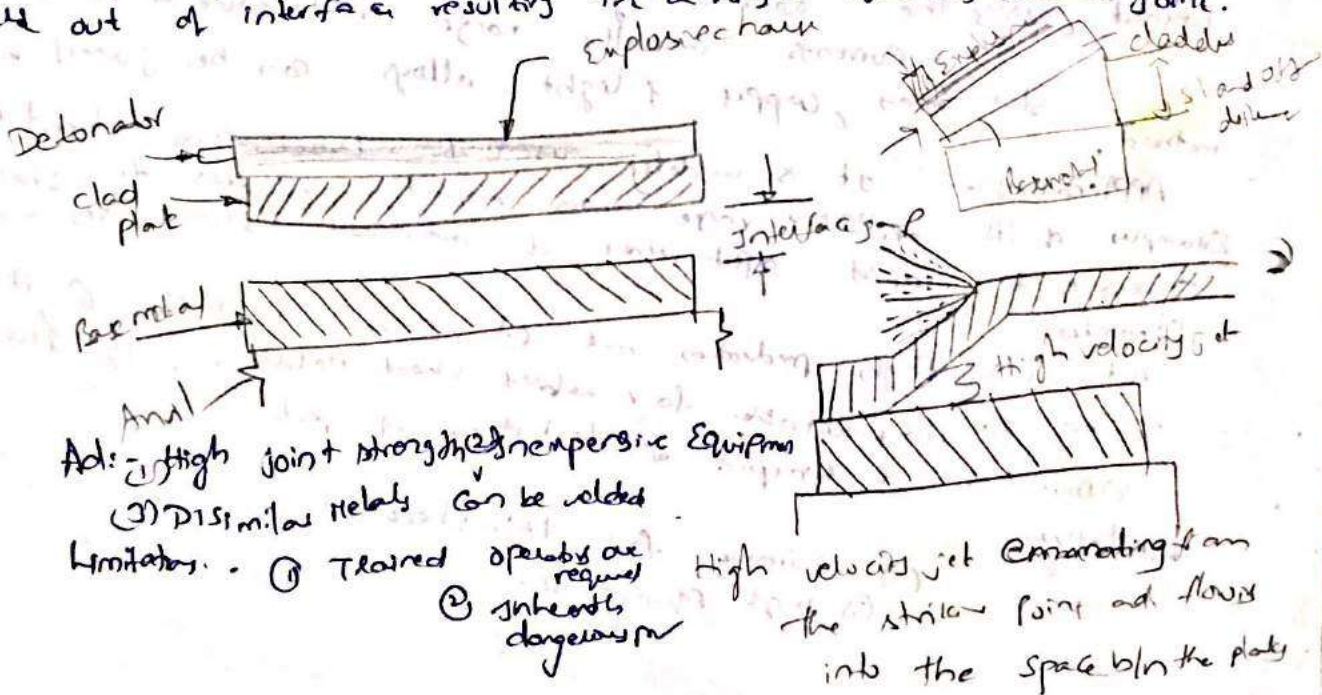 out of interface resulting in joint.
Explosive
claddes
Detonator
clad
plat
stand off
Interface gap
Base metal
High velocity jet
Anvil
Ad:- (1) High joint strength (2) Inexpensive Equipmn
(3) DISimilar Metals Can be welded
Limitatons.. ① Trained operators are
required
② Inherently
dangerous
High velocity jet Emanating from
the strike point ad flows
into the space b/n the plates